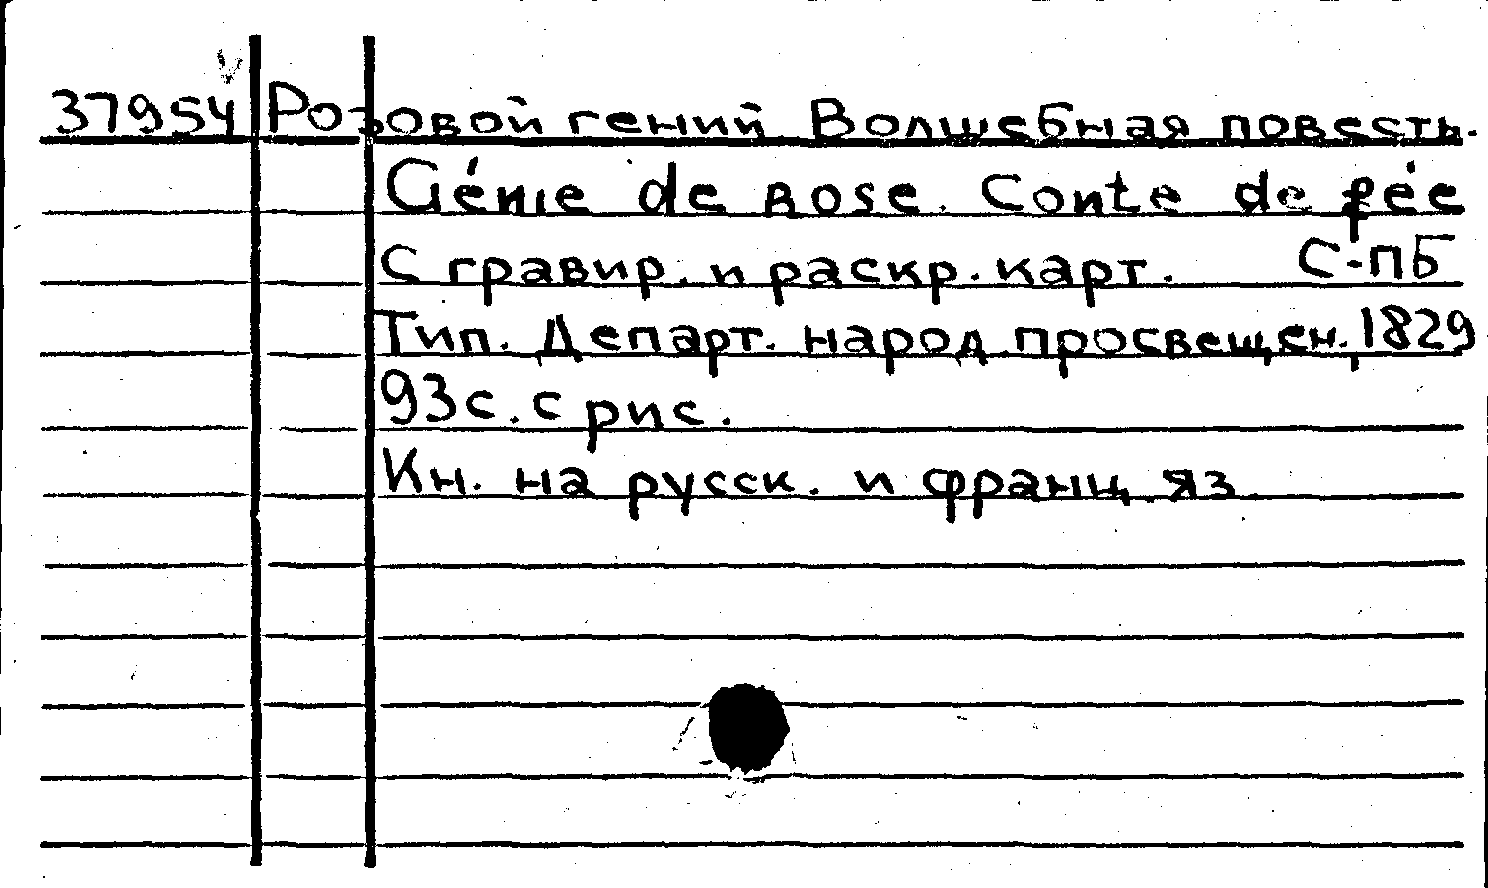 37954 Розовой гений. Волшебная повесть.
Génie de Rose. Conte de fée
С гравир. и раскр. карт. С-ПБ
Тип. Департ. народ. просвещен. 1829,
93с. с рис.
Кн. на русск. и франц. яз.